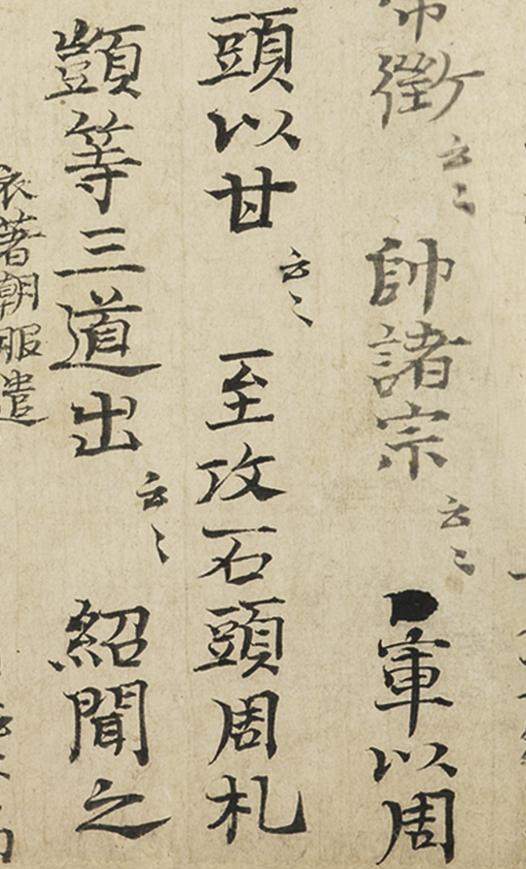 帝徵云〻帥諸宗云〻軍以周
頭以甘云〻至攻石頭周札
顗等三道出云〻紹聞之
衣著朝服遣